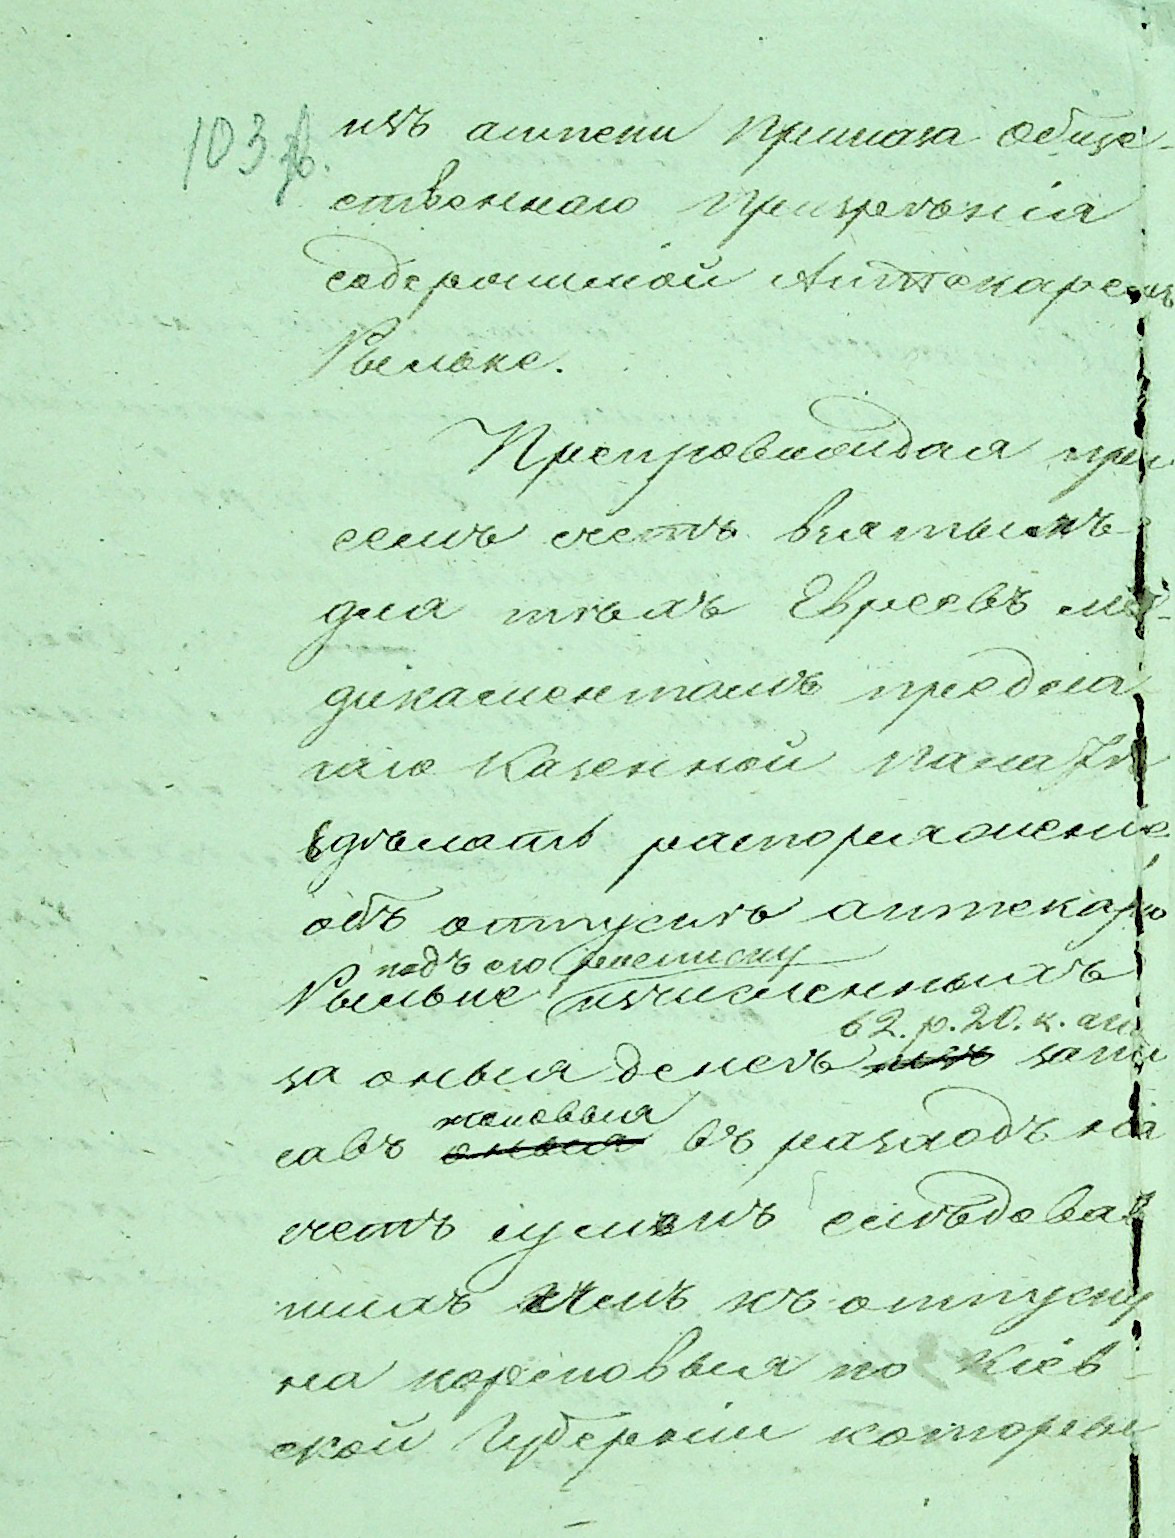 103 об.
изъ аптеки Приказа обще-
ственнаго Призрѣнія
содержимой Аптекаремъ
Рыльке.
Препровождая при
семъ счетъ взятымъ
для тѣхъ Евреевъ ме-
дикаментамъ предла
гаю Казенной Палатѣ
сдѣлать распоряженіе
объ отпускѣ аптекарю
подъ его росписку
Рыльке исчисленныхъ
62. р. 20. к.
за оныя денегъ изъ запи
таковыя
савъ оныя въ расходъ на
счетъ суммъ слѣдовав
шихъ къ отпуску
на кормовыя по Кіев-
ской Губерніи которыя